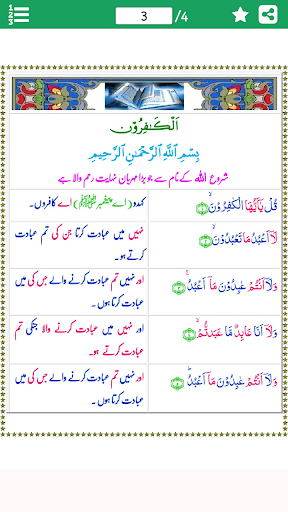 3 /4
اَلْكٰفِرُوْن
بِسْمِ اللّٰهِ الرَّحْمٰنِ الرَّحِيْمِ
شروع اللہ کے نام سے جو بڑا مہربان نہایت رحم والا ہے
قُلْ يٰۤاَيُّهَا الْكٰفِرُوْنَۙ
کہدو (اے پیغمبر ﷺ) اے کافروں۔
لَاۤ اَعْبُدُ مَا تَعْبُدُوْنَۙ
نہیں میں عبادت کرتا جن کی تم عبادت
کرتے ہو۔
وَلَاۤ اَنْتُمْ عٰبِدُوْنَ مَاۤ اَعْبُدُۚ
اور نہیں تم عبادت کرنے والے جس کی میں
عبادت کرتا ہوں۔
وَلَاۤ اَنَا عَابِدٌ مَّا عَبَدْتُّمْۙ
اور نہیں میں عبادت کرنے والا جنکی تم
عبادت کرتے ہو۔
وَلَاۤ اَنْتُمْ عٰبِدُوْنَ مَاۤ اَعْبُدُؕ
اور نہیں تم عبادت کرنے والے جس کی میں
عبادت کرتا ہوں۔